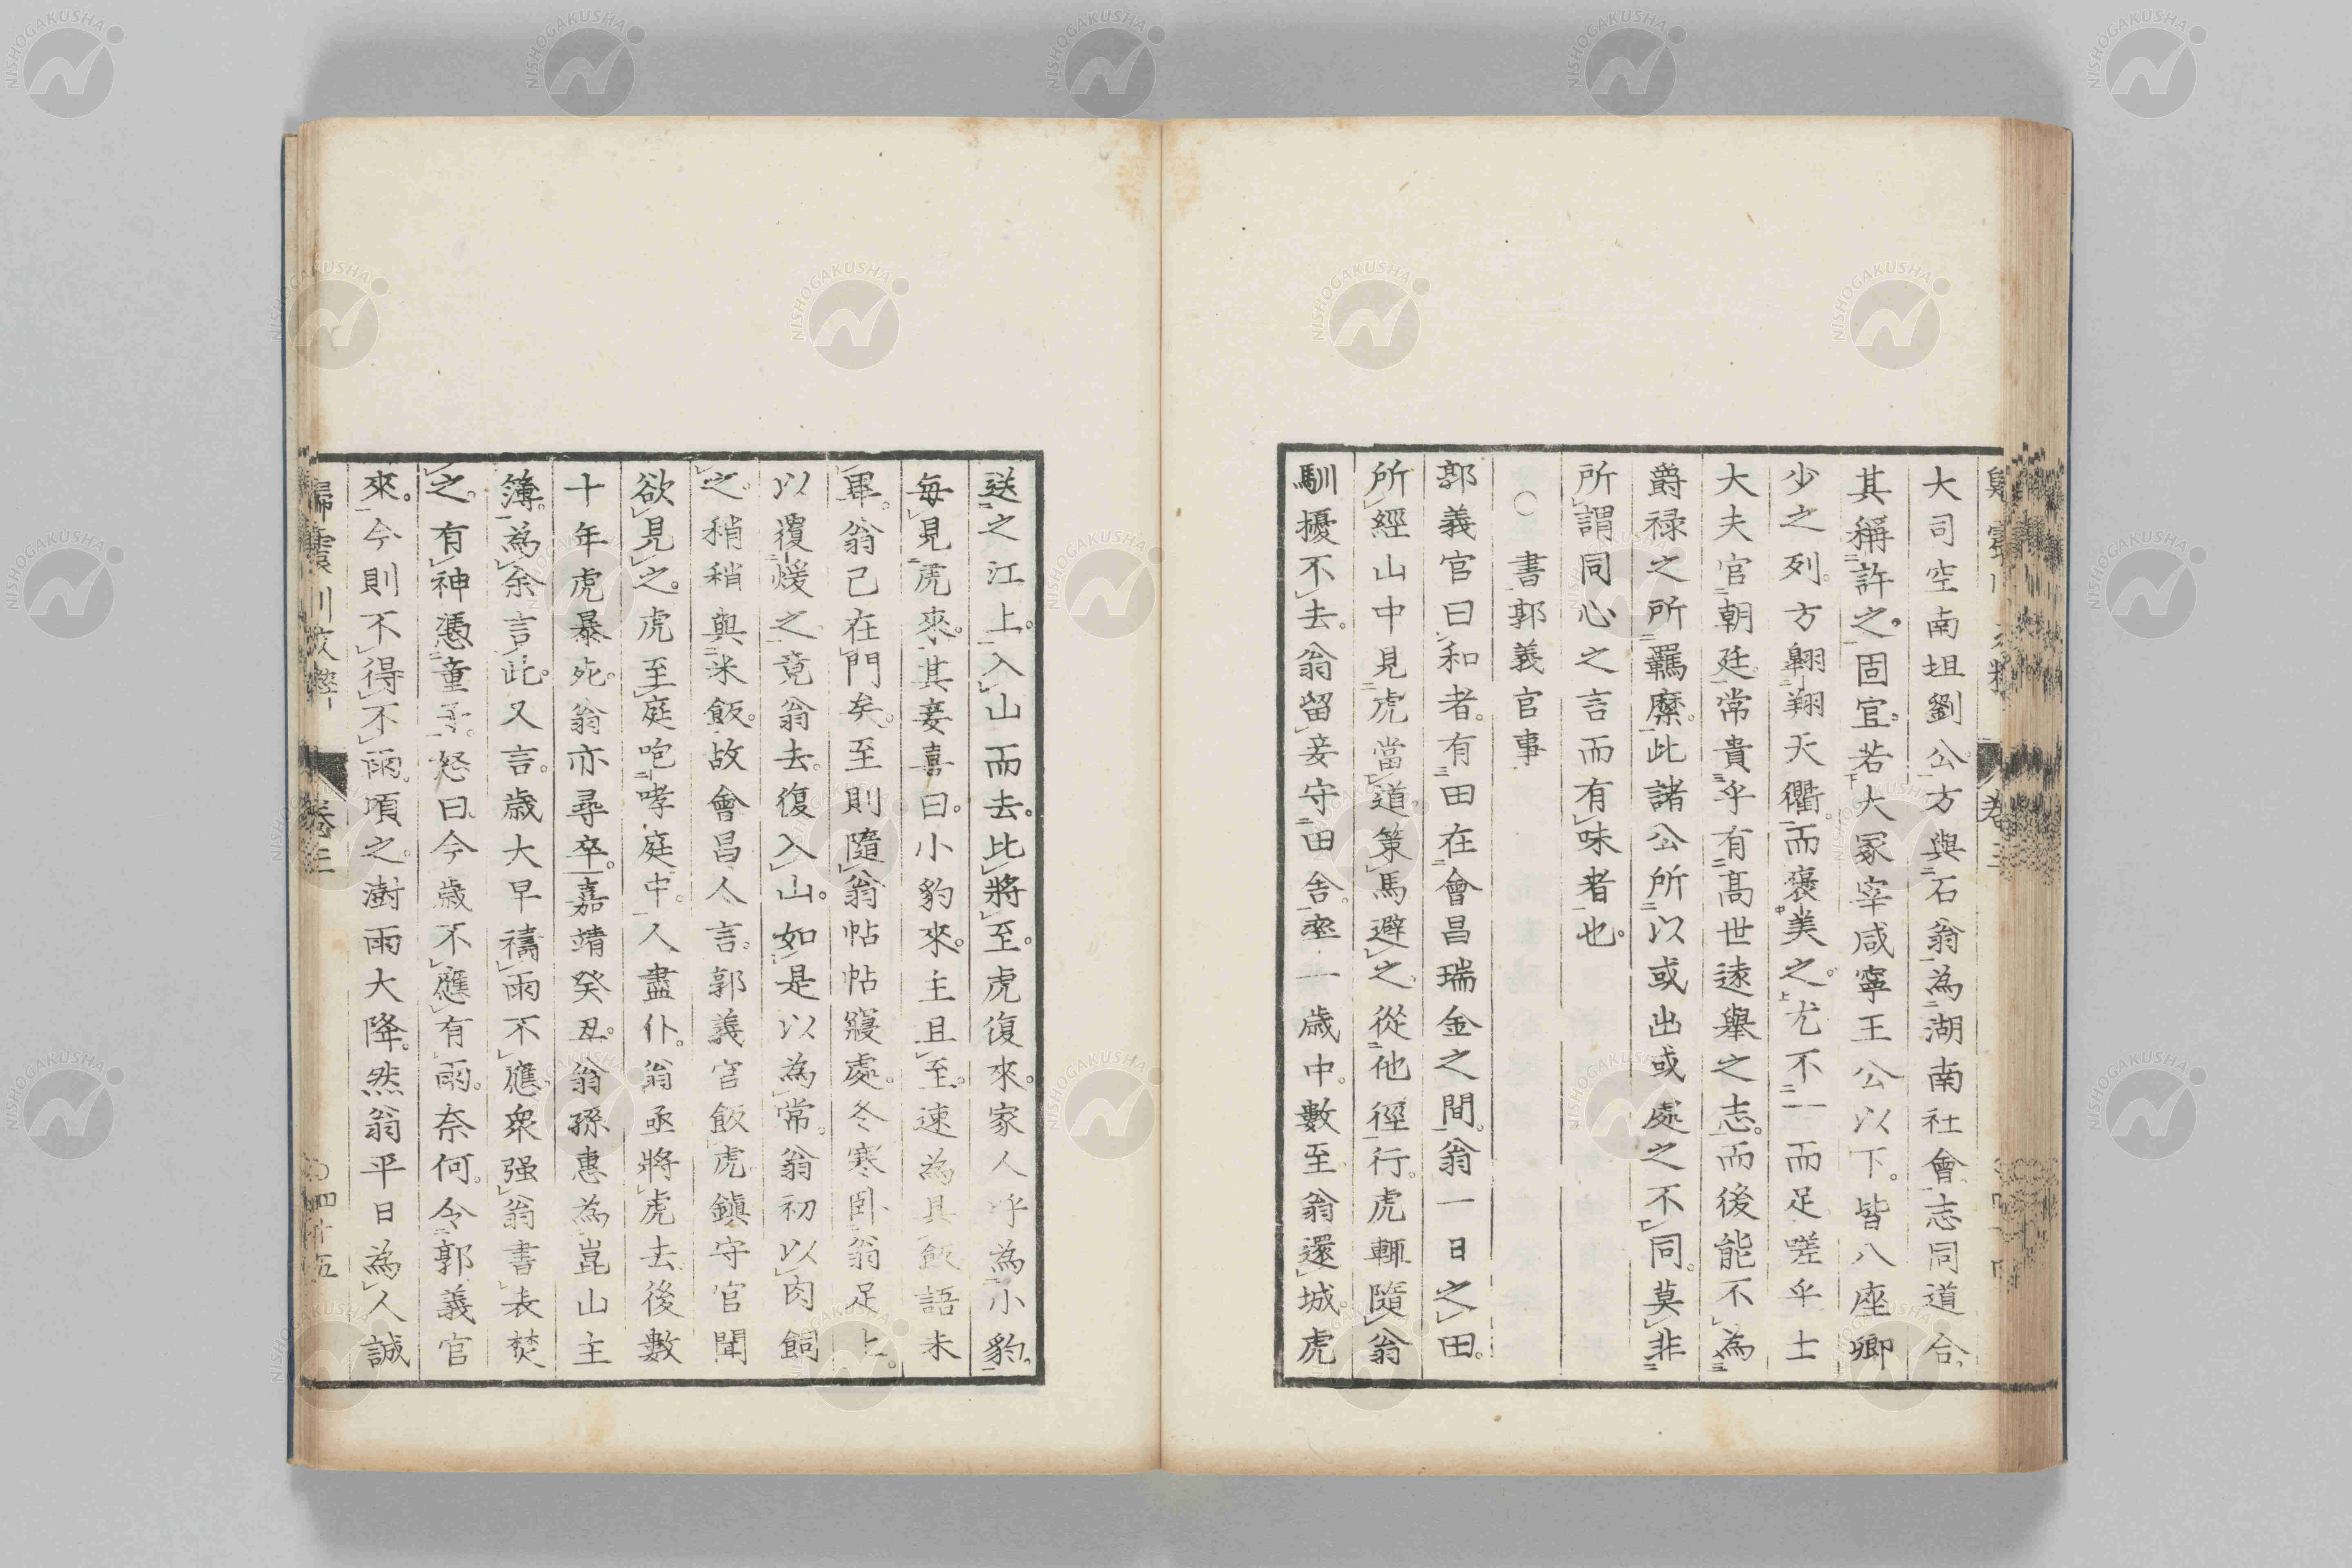 大司空南坦劉公方與石翁為湖南社會志同道合
其稱許之固宜若大冢宰咸寧王公以下皆八座卿
少之列方翺翔天衢而褒美之尤不一而足嗟乎士
大夫官朝廷常貴乎有高世遠舉之志而後能不為
爵祿之所羈縻此諸公所以或出或處之不同莫非
所謂同心之言而有味者也
○書郭義官事
郭義官曰和者有田在會昌瑞金之間翁一日之田
所經山中見虎當道策馬避之從他徑行虎輒隨翁
馴擾不去翁留妾守田舍率一歲中數至翁還城虎
送之江上入山而去比將至虎復來家人呼為小豹
每見虎來其妾喜曰小豹來主且至速為具飯語未
畢翁已在門矣至則隨翁帖帖寢處冬寒臥翁足上
以覆煖之竟翁去復入山如是以為常翁初以肉飼
之稍稍與米飯故會昌人言郭義官飯虎鎮守官聞
欲見之虎至庭咆哮庭中人盡仆翁亟將虎去後數
十年虎暴死翁亦尋卒嘉靖癸丑翁孫惠為崑山主
簿為余言此又言歲大旱禱雨不應眾强翁書表焚
之有神憑童子怒曰今歲不應有雨奈何令郭義官
來今則不得不雨項之澍雨大降然翁平日為人誠
歸震川文粹 卷三 ○四十五
NISHOGAKUSHA